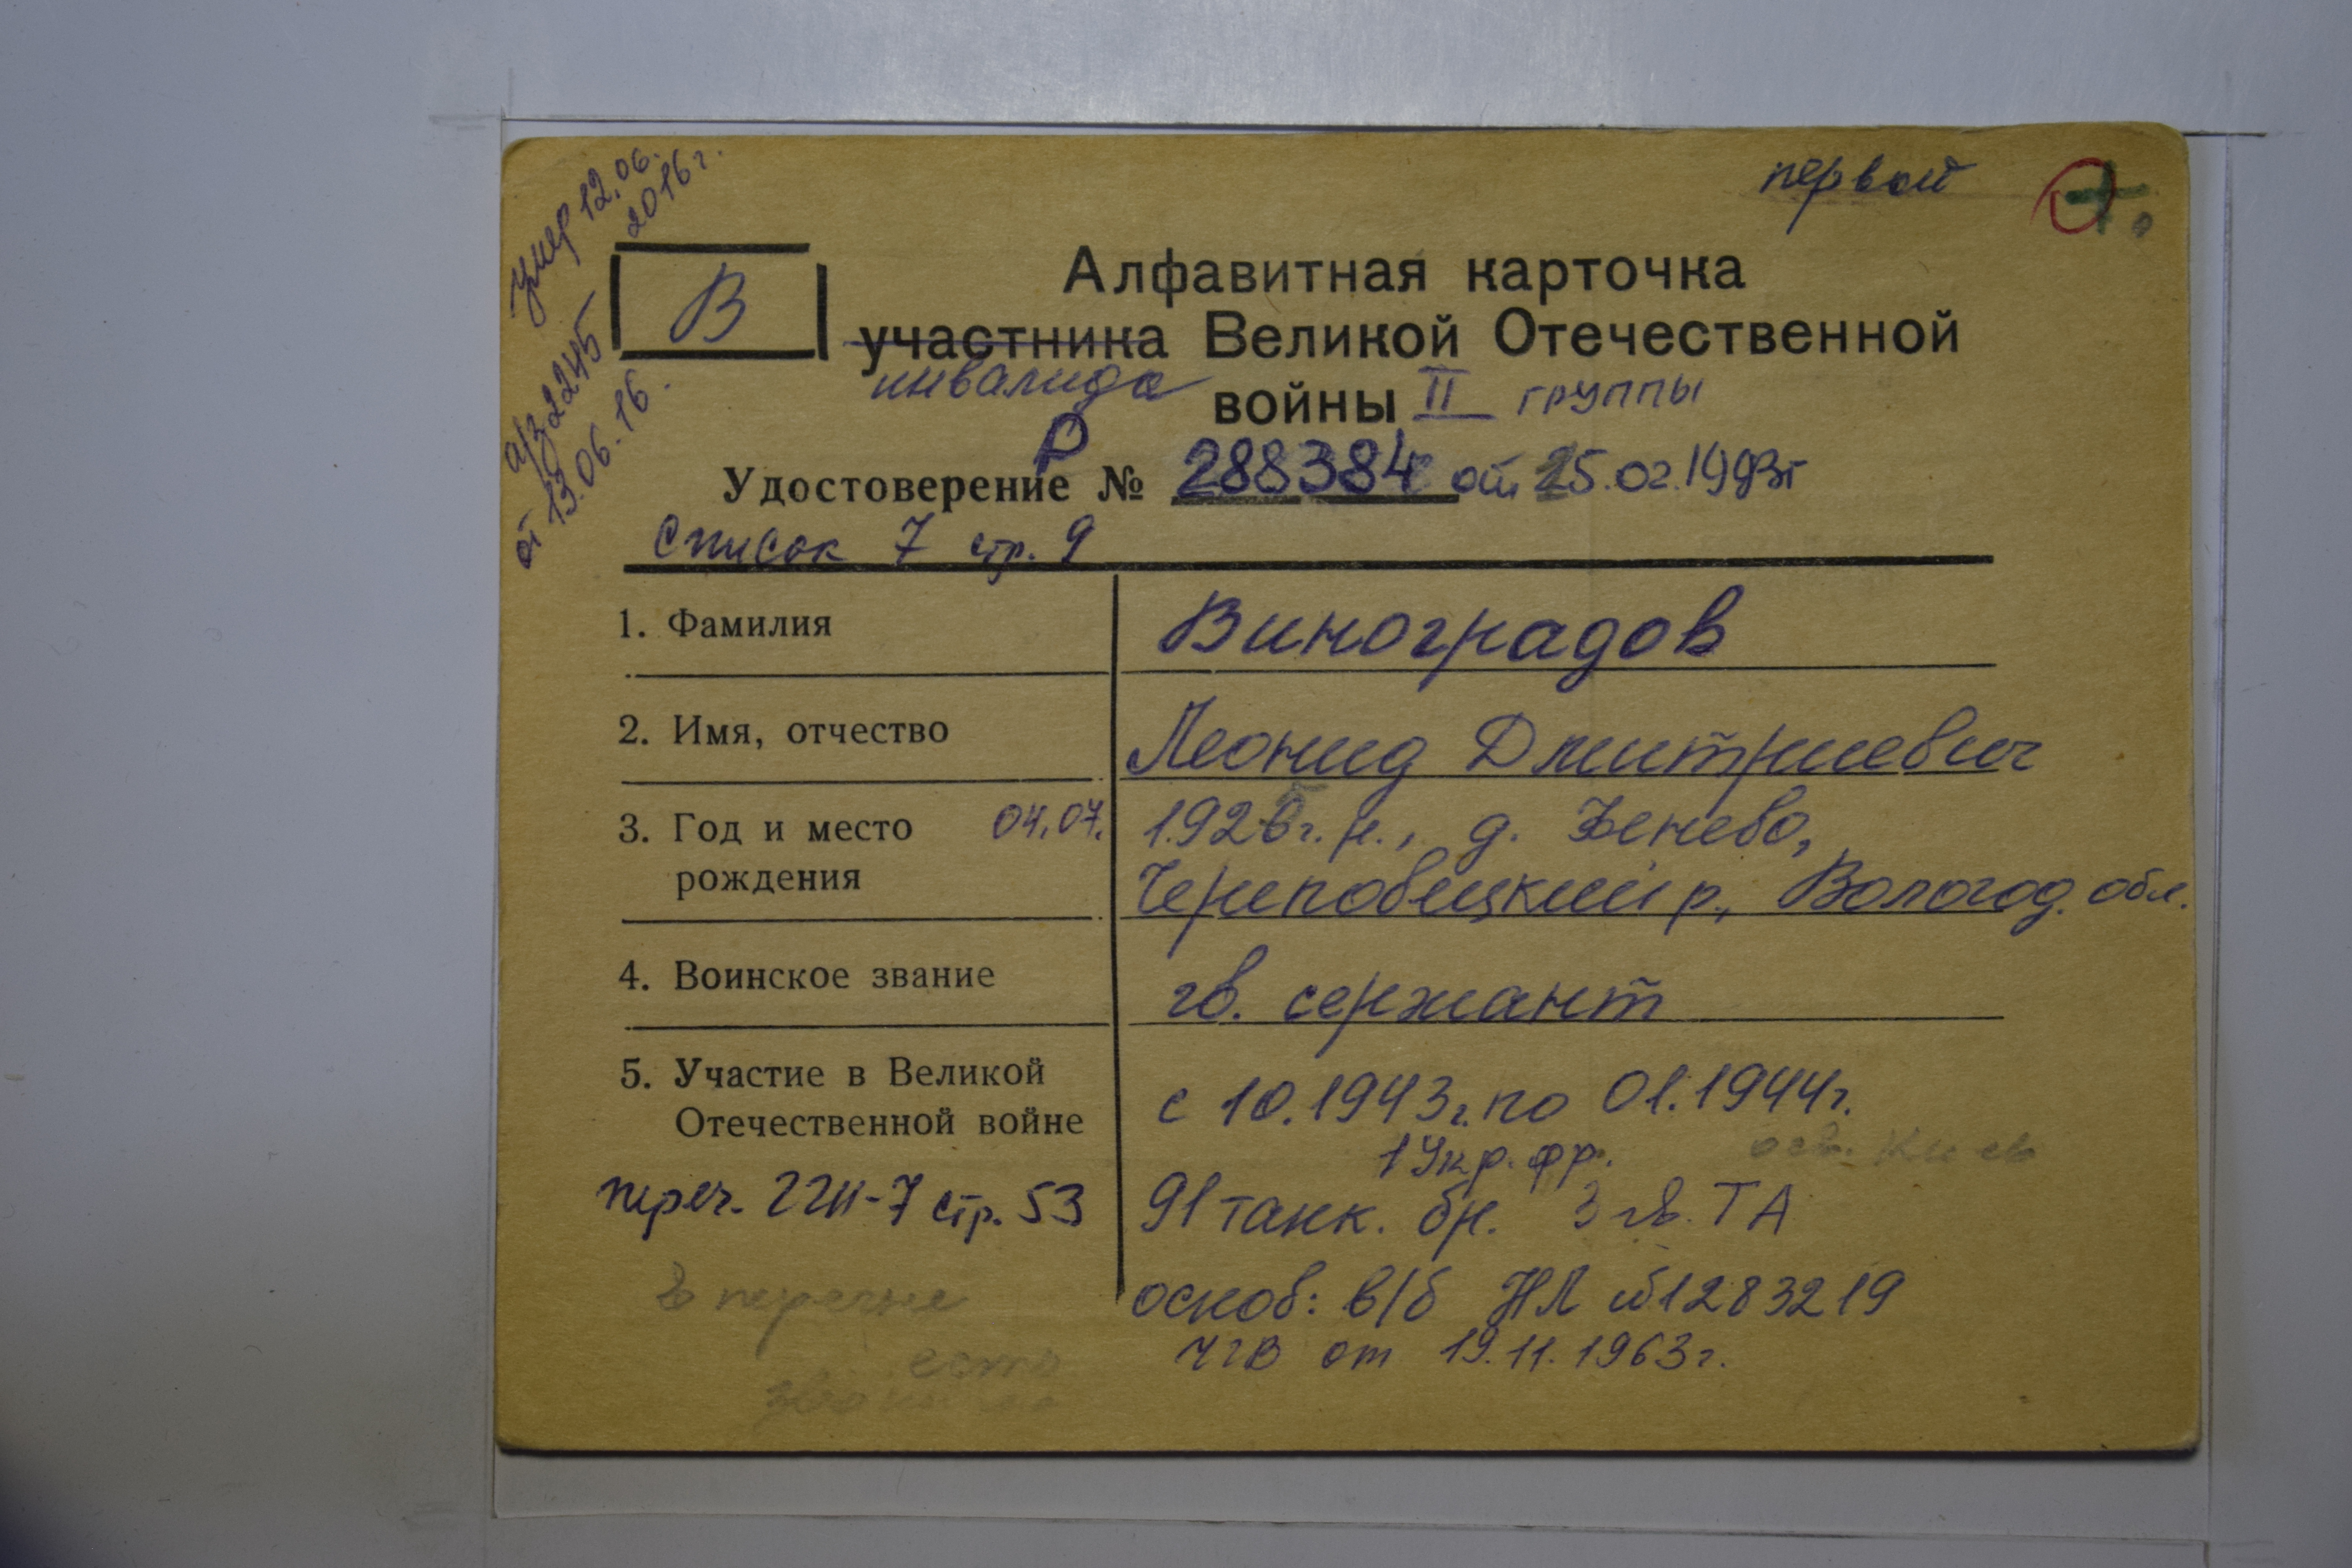 умер 12.06.
2016г.
а/з 2245
от 13.06.16.
первой
В
Алфавитная карточка
участника Великой Отечественной
инвалида войны II группы
Р
Удостоверение № 288384 от 25.02.1993г
Список 7 стр. 9
1. Фамилия Виноградов
2. Имя, отчество Леонид Дмитриевич
3. Год и место 04.07. 1926г.р., д. Зенево,
рождения Череповецкий р., Вологод. обл.
4. Воинское звание гв. сержант
5. Участие в Великой с 10.1943г. по 01.1944г.
Отечественной войне 1 Укр. фр. осв. Киев
переч. 22Н-7 стр. 53 91 танк. бр. 3 гв. ТА
В перечне основ: в/б НЛ №1283219
есть ЧГВ от 19.11.1963г.